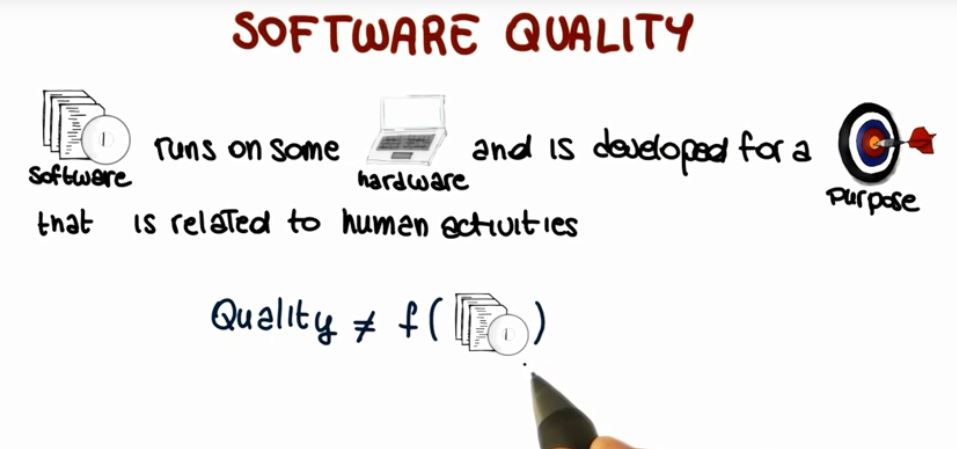 SOFTWARE QUALITY
software runs on some hardware and is developed for a purpose
that is related to human activities
Quality ≠ f( )